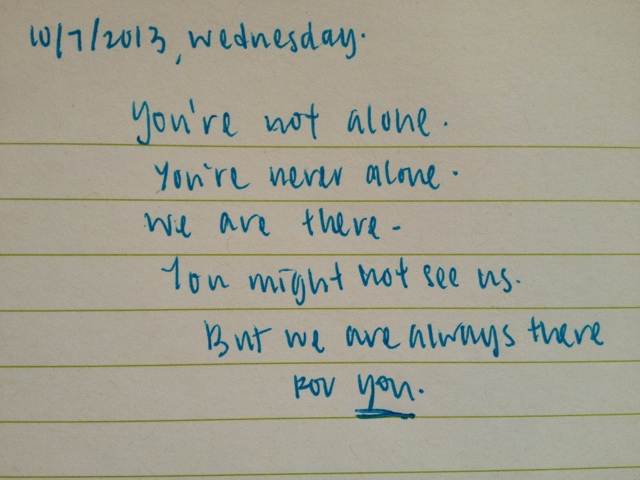 10/7/2013, wednesday.
You're not alone.
You're never alone.
We are there.
You might not see us.
But we are always there
for you.